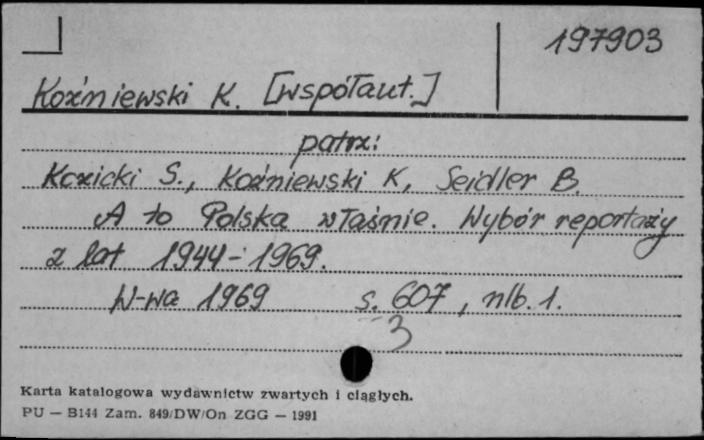 197903
Koźniewski K. [współaut.]
patrz:
Kozicki S., Koźniewski K, Seidler B.
A to Polska właśnie. Wybór reportaży
z lat 1944-1969.
W-wa 1969 s. 607, nlb. 1.
3
Karta katalogowa wydawnictw zwartych i ciągłych.
PU — B144 Zam. 849/DW/On ZGG — 1991